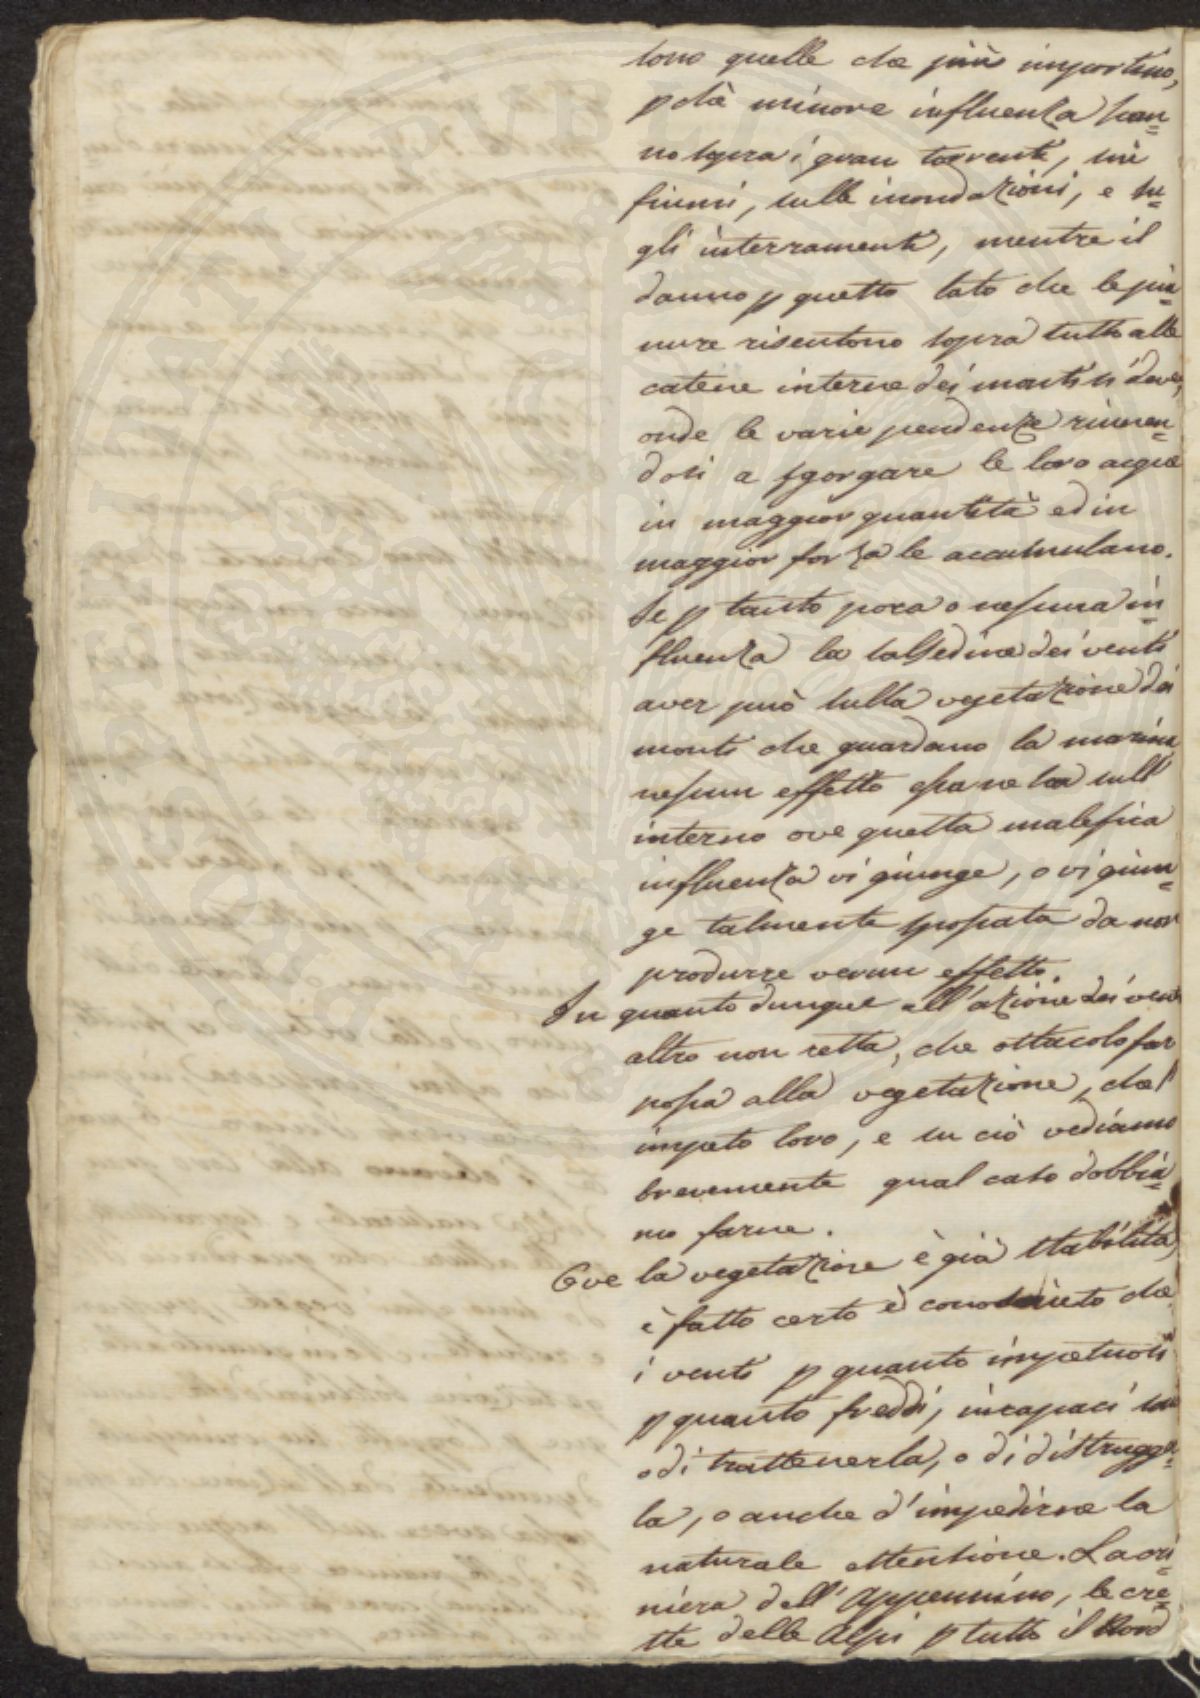 sono quelle che più importino,
p chè minore influenza han=
no sopra i gran torrenti, sui
fiumi, sulle inondazioni, e su=
gli interramenti, mentre il
danno p questo lato che le pia=
nure risentono sopra tutto alle
catene interne dei monti si deve,
onde le varie pendenze riunen=
dosi a sgorgare le loro acque
in maggior quantità ed in
maggior forza le accumulano.
Se p tanto poca o nessuna in=
fluenza la salsedine dei venti
aver può sulla vegetazione dei
monti che guardano la marina
nessun effetto essa ne ha sull'
interno ove questa malefica
influenza vi giunge, o vi giun=
ge talmente spossata da non
produrre verun effetto.
In quanto dunque all'azione dei venti
altro non resta, che ostacolo far
possa alla vegetazione, che l'
impeto loro, e su ciò vediamo
brevemente qual caso dobbia=
mo farne.
Ove la vegetazione è già stabilita,
è fatto certo e conosciuto che
i venti p quanto impetuosi
p quanto freddi, incapaci son
o di trattenerla, o di distrugger=
la, o anche d'impedirne la
naturale estensione. La cri=
niera dell'Appennino, le cre=
ste delle Alpi p tutto il Nord